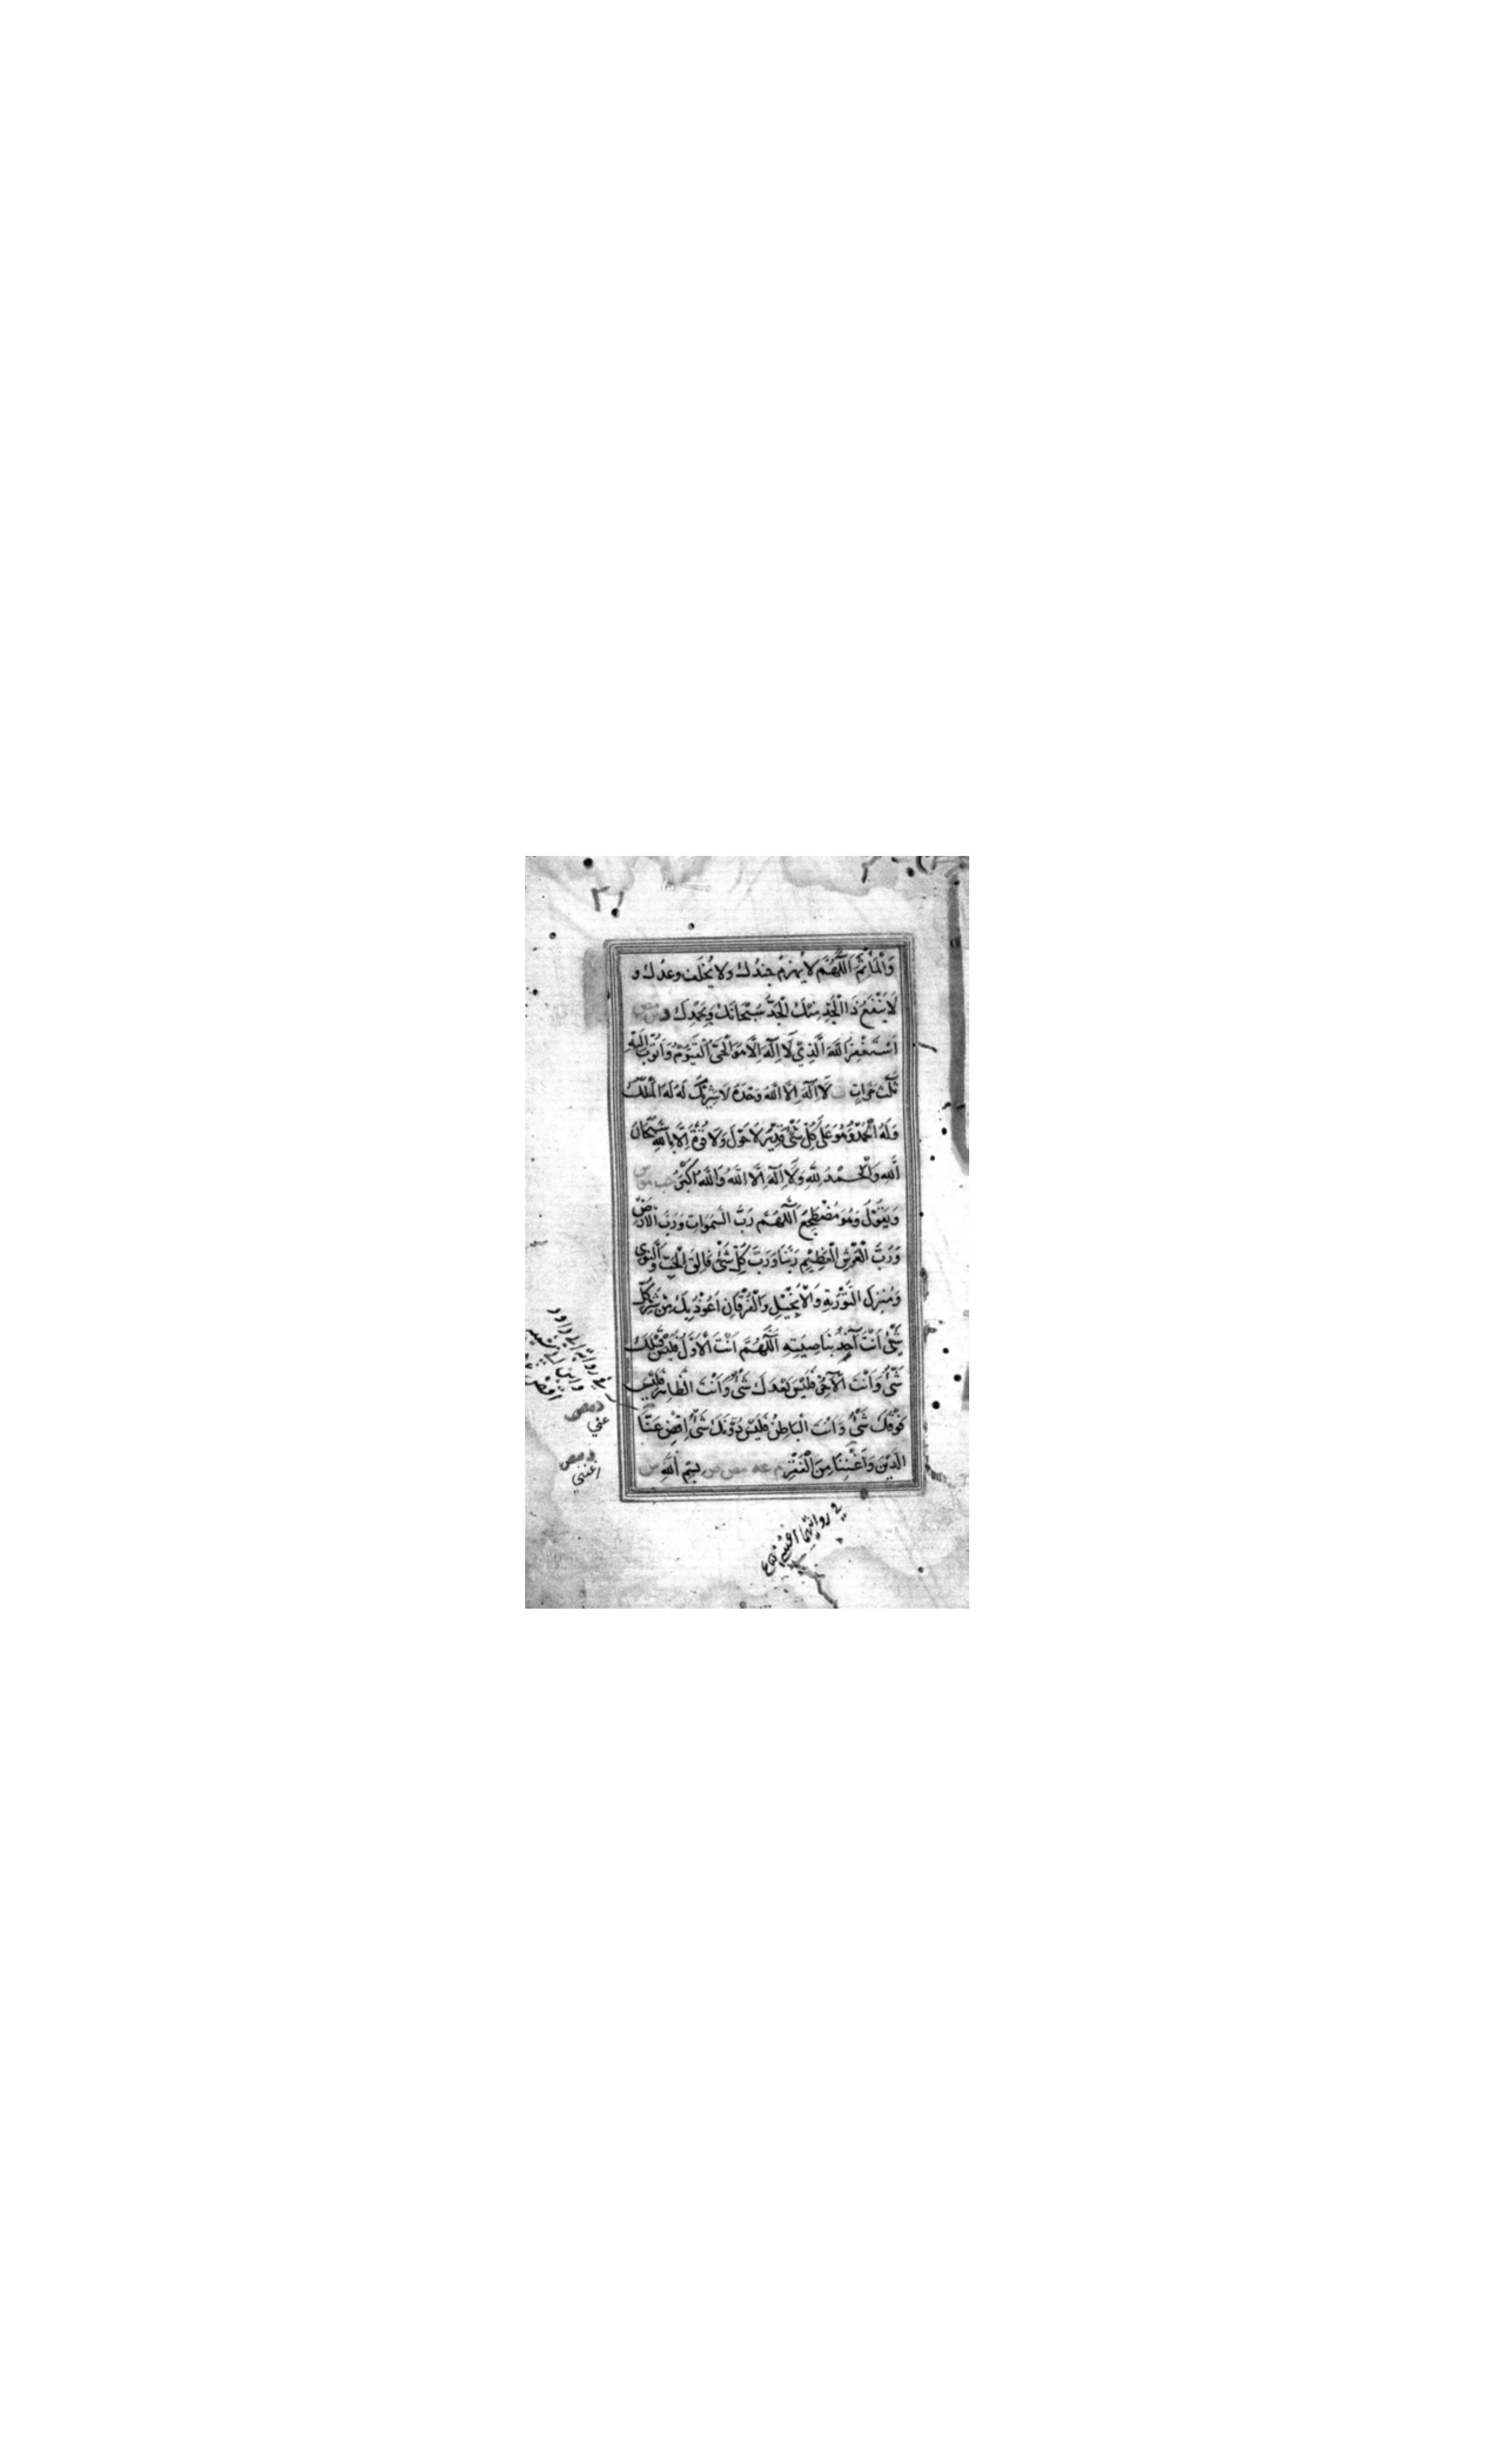 ٢١
وَالْمَأْثَمَ اَللّٰهُمَّ لَا يُهْزَمُ جُنْدُكَ وَلَا يُخْلَفُ وَعْدُكَ وَ
لَا يَنْفَعُ ذَا الْجَدِّ مِنْكَ الْجَدُّ سُبْحَانَكَ وَبِحَمْدِكَ
اَسْتَغْفِرُ اللّٰهَ الَّذِي لَا اِلٰهَ اِلَّا هُوَ الْحَيَّ الْقَيُّوْمَ وَاَتُوْبُ اِلَيْهِ
ثَلٰثَ مَرَّاتٍ لَا اِلٰهَ اِلَّا اللّٰهُ وَحْدَهُ لَا شَرِيْكَ لَهُ لَهُ الْمُلْكُ
وَلَهُ الْحَمْدُ وَهُوَ عَلَى كُلِّ شَيْءٍ قَدِيْرٌ لَا حَوْلَ وَلَا قُوَّةَ اِلَّا بِاللّٰهِ سُبْحَانَ
اللّٰهِ وَالْحَمْدُ لِلّٰهِ وَلَا اِلٰهَ اِلَّا اللّٰهُ وَاللّٰهُ اَكْبَرُ
وَيَقُوْلُ وَهُوَ مُضْطَجِعٌ اَللّٰهُمَّ رَبَّ السَّمٰوَاتِ وَرَبَّ الْاَرْضِ
وَرَبَّ الْعَرْشِ الْعَظِيْمِ رَبَّنَا وَرَبَّ كُلِّ شَيْءٍ فَالِقَ الْحَبِّ وَالنَّوٰى
وَمُنْزِلَ التَّوْرٰىةِ وَالْاِنْجِيْلِ وَالْفُرْقَانِ اَعُوْذُ بِكَ مِنْ شَرِّ كُلِّ
شَيْءٍ اَنْتَ آخِذٌ بِنَاصِيَتِهِ اَللّٰهُمَّ اَنْتَ الْاَوَّلُ فَلَيْسَ قَبْلَكَ
شَيْءٌ وَاَنْتَ الْآخِرُ فَلَيْسَ بَعْدَكَ شَيْءٌ وَاَنْتَ الظَّاهِرُ فَلَيْسَ
فَوْقَكَ شَيْءٌ وَاَنْتَ الْبَاطِنُ فَلَيْسَ دُوْنَكَ شَيْءٌ اِقْضِ عَنَّا
الدَّيْنَ وَاَغْنِنَا مِنَ الْفَقْرِ م عه مص بِسْمِ اللّٰهِ
في رواية ابي داود
د مص
عني
د مص
اغنني
في روايتهما